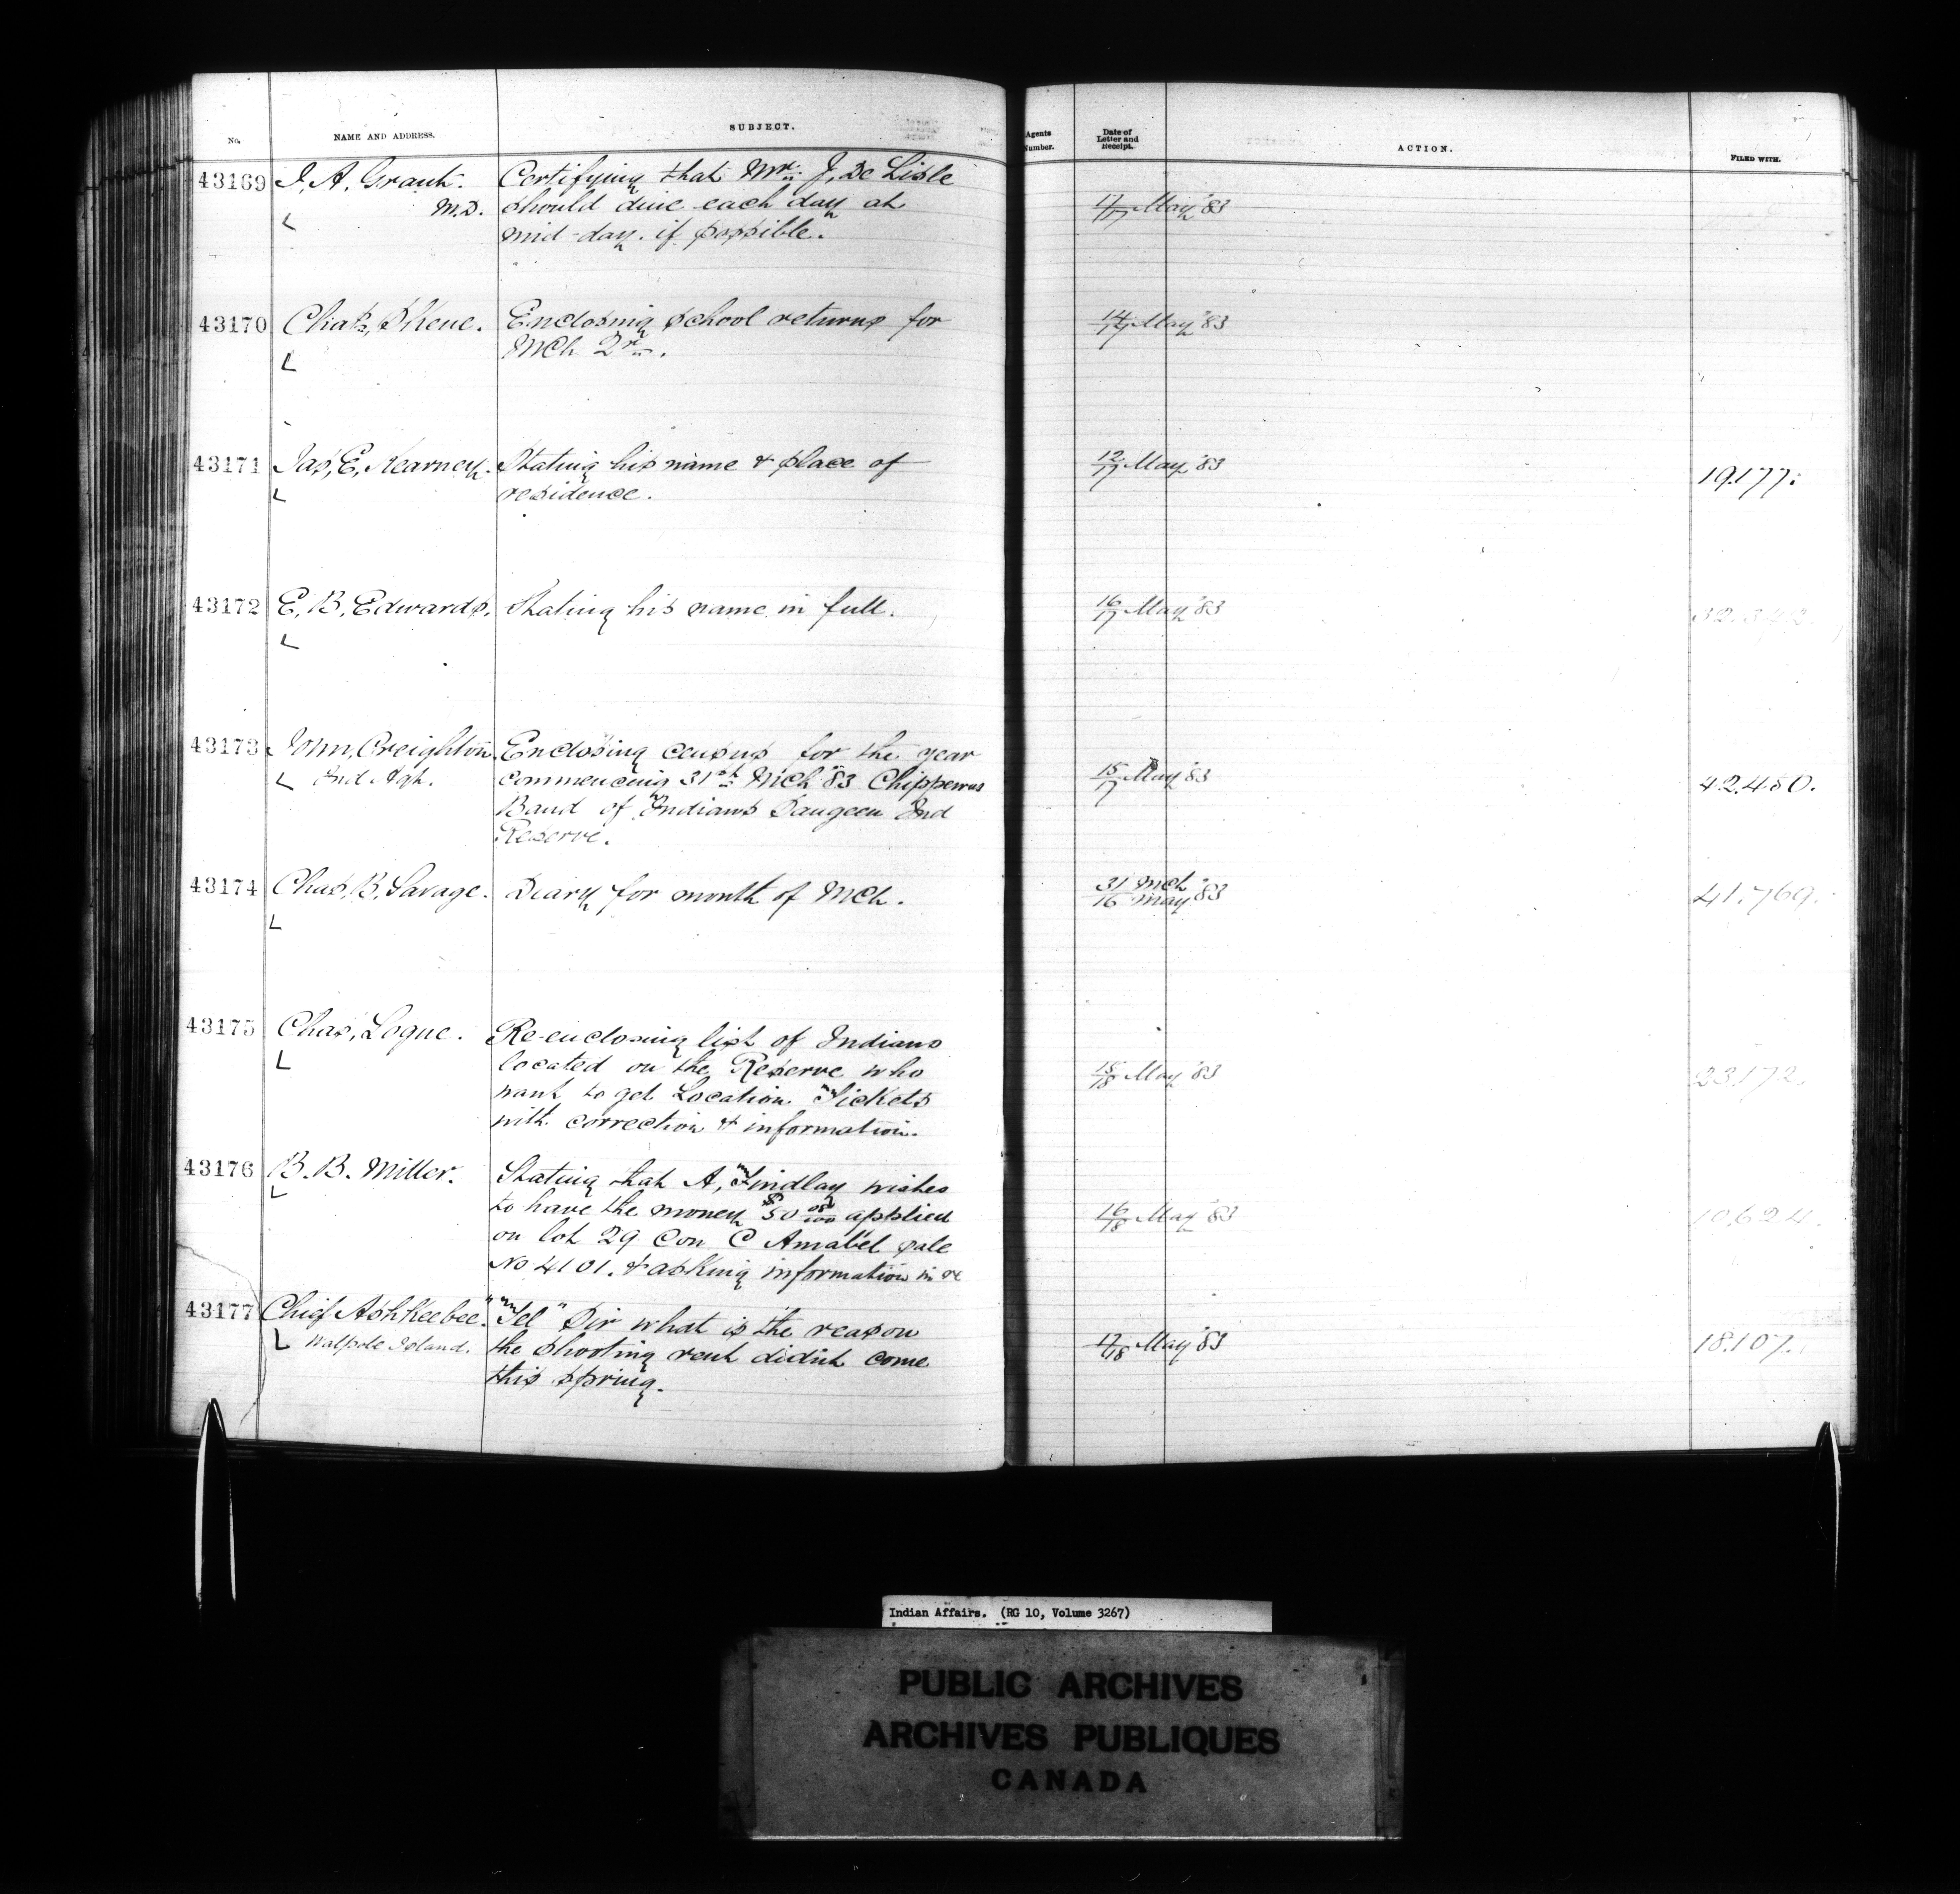 No.
NAME AND ADDRESS.
SUBJECT.
Agents Number.
Date of Letter and Receipt.
ACTION.
FILED WITH.
43169 J. A. Grant. Certifying that Mr. J. De Lisle
M.D. should dine each day at
mid-day. if possible.
17/17 May '83
43170 Chas, Skene. Enclosing school returns for
Mch Qr.
14/17 May '83
43171 Jas, E, Kearney. Stating his name & place of
residence.
12/17 May '83
19.177.
43172 E, B, Edwards. Stating his name in full.
16/17 May '83
43173 John, Creighton. Enclosing census for the year
Ind Agt. commencing 31st Mch '83 Chippewas
Band of Indians Saugeen Ind
Reserve.
15/17 May '83
42.450.
43174 Chas, B, Savage. Diary for month of Mch.
31 Mch
16 May '83
41.769.
43175 Chas, Logue. Re-enclosing list of Indians
located on the Reserve who
want to get Location Tickets
with correction & information.
15/18 May '83
23.172.
43176 B. B. Miller. Stating that A, Findlay wishes
to have the money $50 00/100 applied
on lot 29 Con C Amabel sale
No 4101. & asking information in re
16/18 May '83
10,624.
43177 Chief Ashkeebee. "Tel" Sir what is the reason
Walpole Island. the shooting rent didnt come
this spring.
17/18 May '83
18.107.
Indian Affairs. (RG 10, Volume 3267)
PUBLIC ARCHIVES
ARCHIVES PUBLIQUES
CANADA